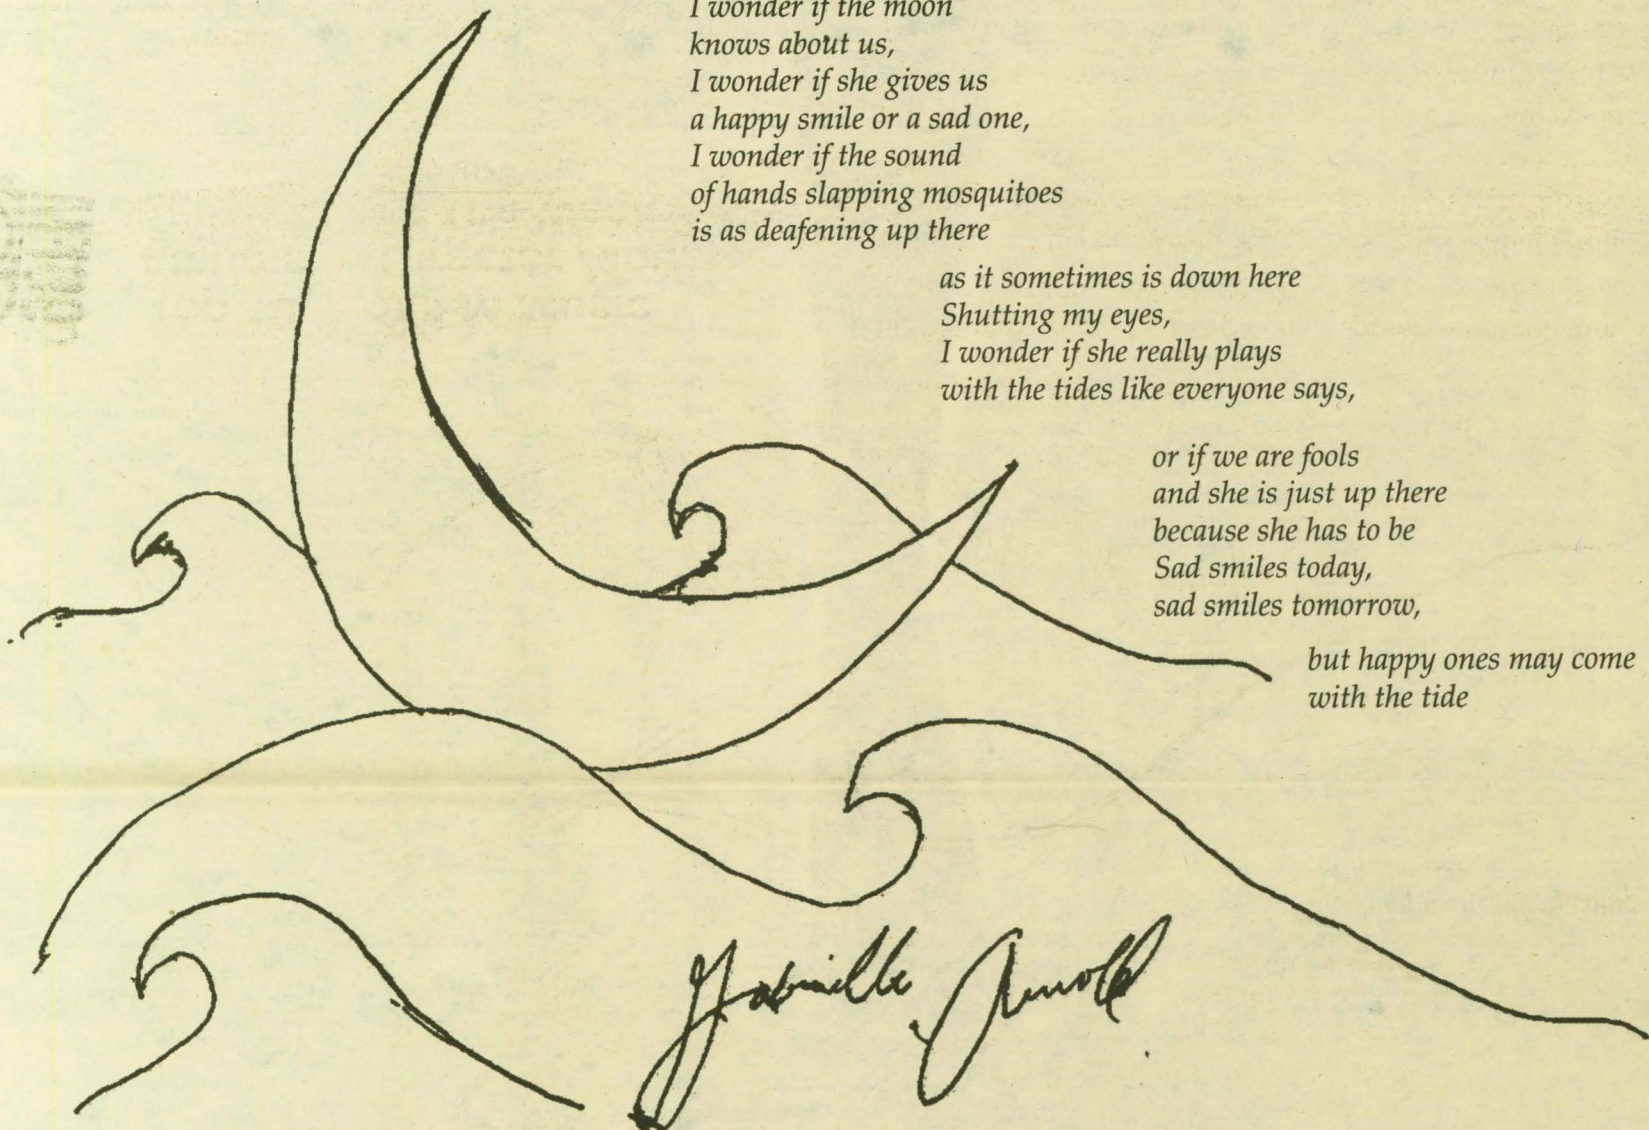 I wonder if the moon
knows about us,
I wonder if she gives us
a happy smile or a sad one,
I wonder if the sound
of hands slapping mosquitoes
is as deafening up there
as it sometimes is down here
Shutting my eyes,
I wonder if she really plays
with the tides like everyone says,
or if we are fools
and she is just up there
because she has to be
Sad smiles today,
sad smiles tomorrow,
but happy ones may come
with the tide
Gabrielle Arnold